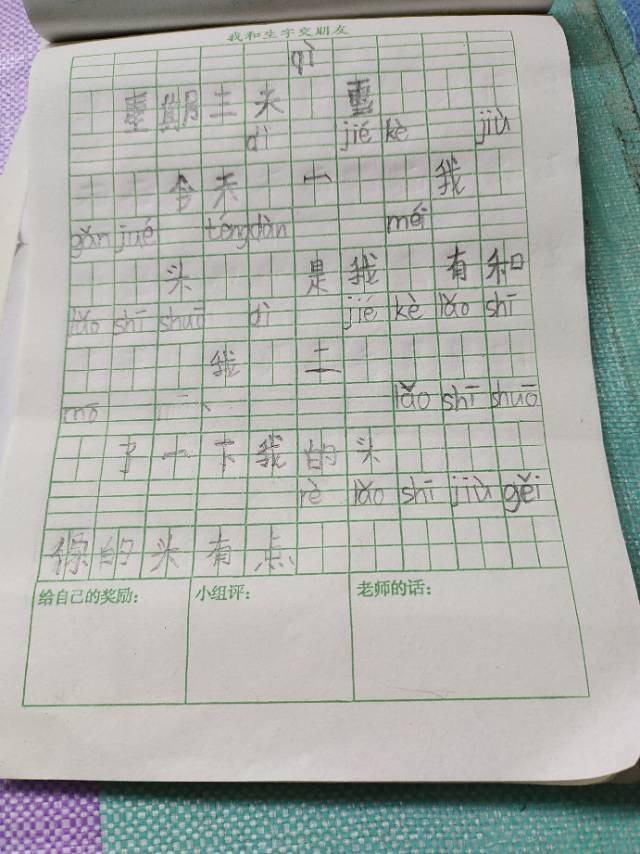 我和生字交朋友
qì
星期三天 雪
dì jié kè jiù
今天 十 我
gǎn jué téng dàn méi
头 是我 有和
lǎo shī shuō dì jié kè lǎo shī
我 二
mō lǎo shī shuō
了一下我的头
rè lǎo shī jiù gěi
你的头有点
给自己的奖励:
小组评:
老师的话: